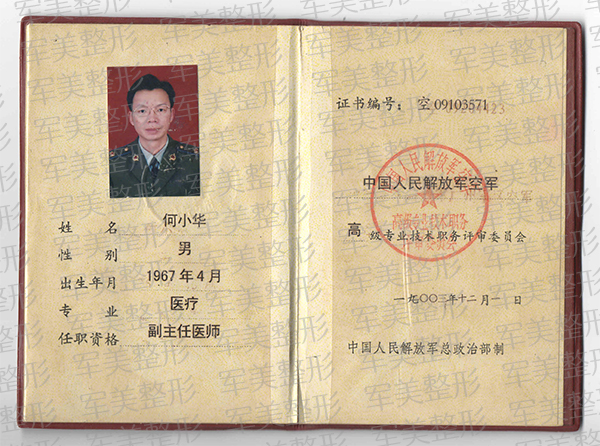 姓名 何小华
性别 男
出生年月 1967年4月
专业 医疗
任职资格 副主任医师
证书编号: 空09103571
中国人民解放军空军
高级专业技术职务评审委员会
中国人民解放军总政治部制
军美整形